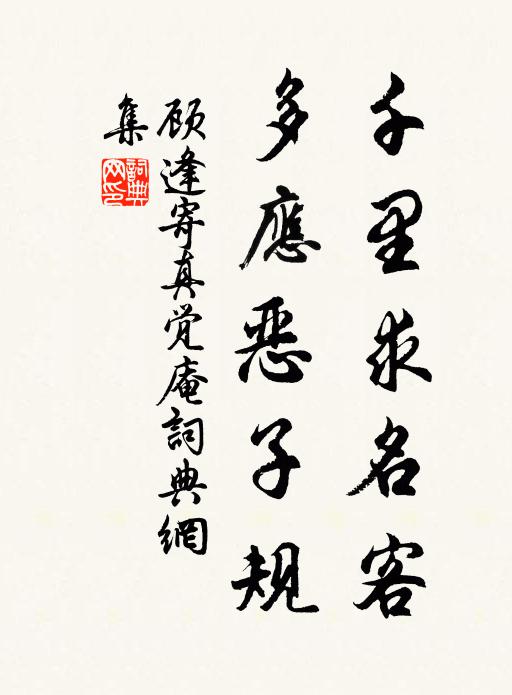 千里求名客
多應惡子規
顾逢寄真觉庵詞典網
集
詞典網印